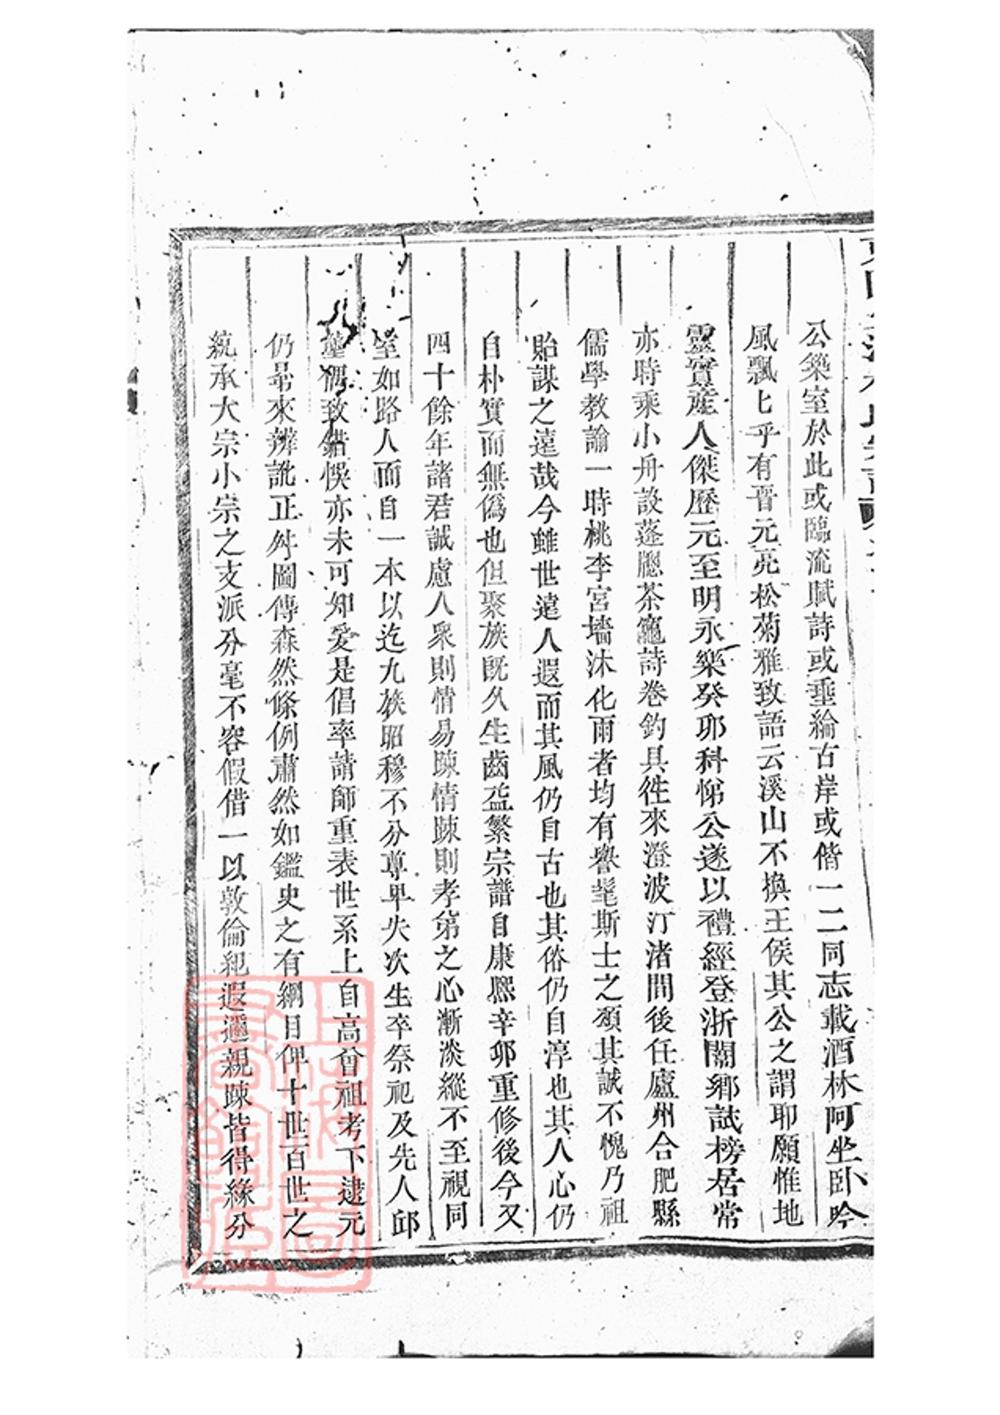 公築室於此或臨流賦詩或垂綸古岸或偕一二同志載酒林阿坐臥吟
風飄匕乎有晋元亮松菊雅致語云溪山不換王侯其公之謂耶願惟地
靈實産人傑歷元至明永樂癸卯科悌公遂以禮經登浙闈鄉試榜居常
亦時乘小舟設蓬牕茶竈詩卷釣具徃來澄波汀渚間後任廬州合肥縣
儒學教諭一時桃李宮墻沐化雨者均有譽髦斯士之頌其誠不愧乃祖
貽謀之遠哉今雖世遠人遐而其風仍自古也其俗仍自淳也其人心仍
自朴實而無僞也但聚族旣久生齒益繁宗譜自康熙辛卯重修後今又
四十餘年諸君誠慮人衆則情易踈情踈則孝弟之心漸淡縱不至視同
堂如路人而自一本以迄九族昭穆不分尊卑失次生卒祭祀及先人邱
壠偶致錯悞亦未可知爰是倡率請師重表世系上自高曾祖考下逮元
仍昻來辨訛正舛圖傳森然條例肅然如鑑史之有綱目俾十世百世之
統承大宗小宗之支派分毫不容假借一以敦倫犯遐邇親踈皆得緣分